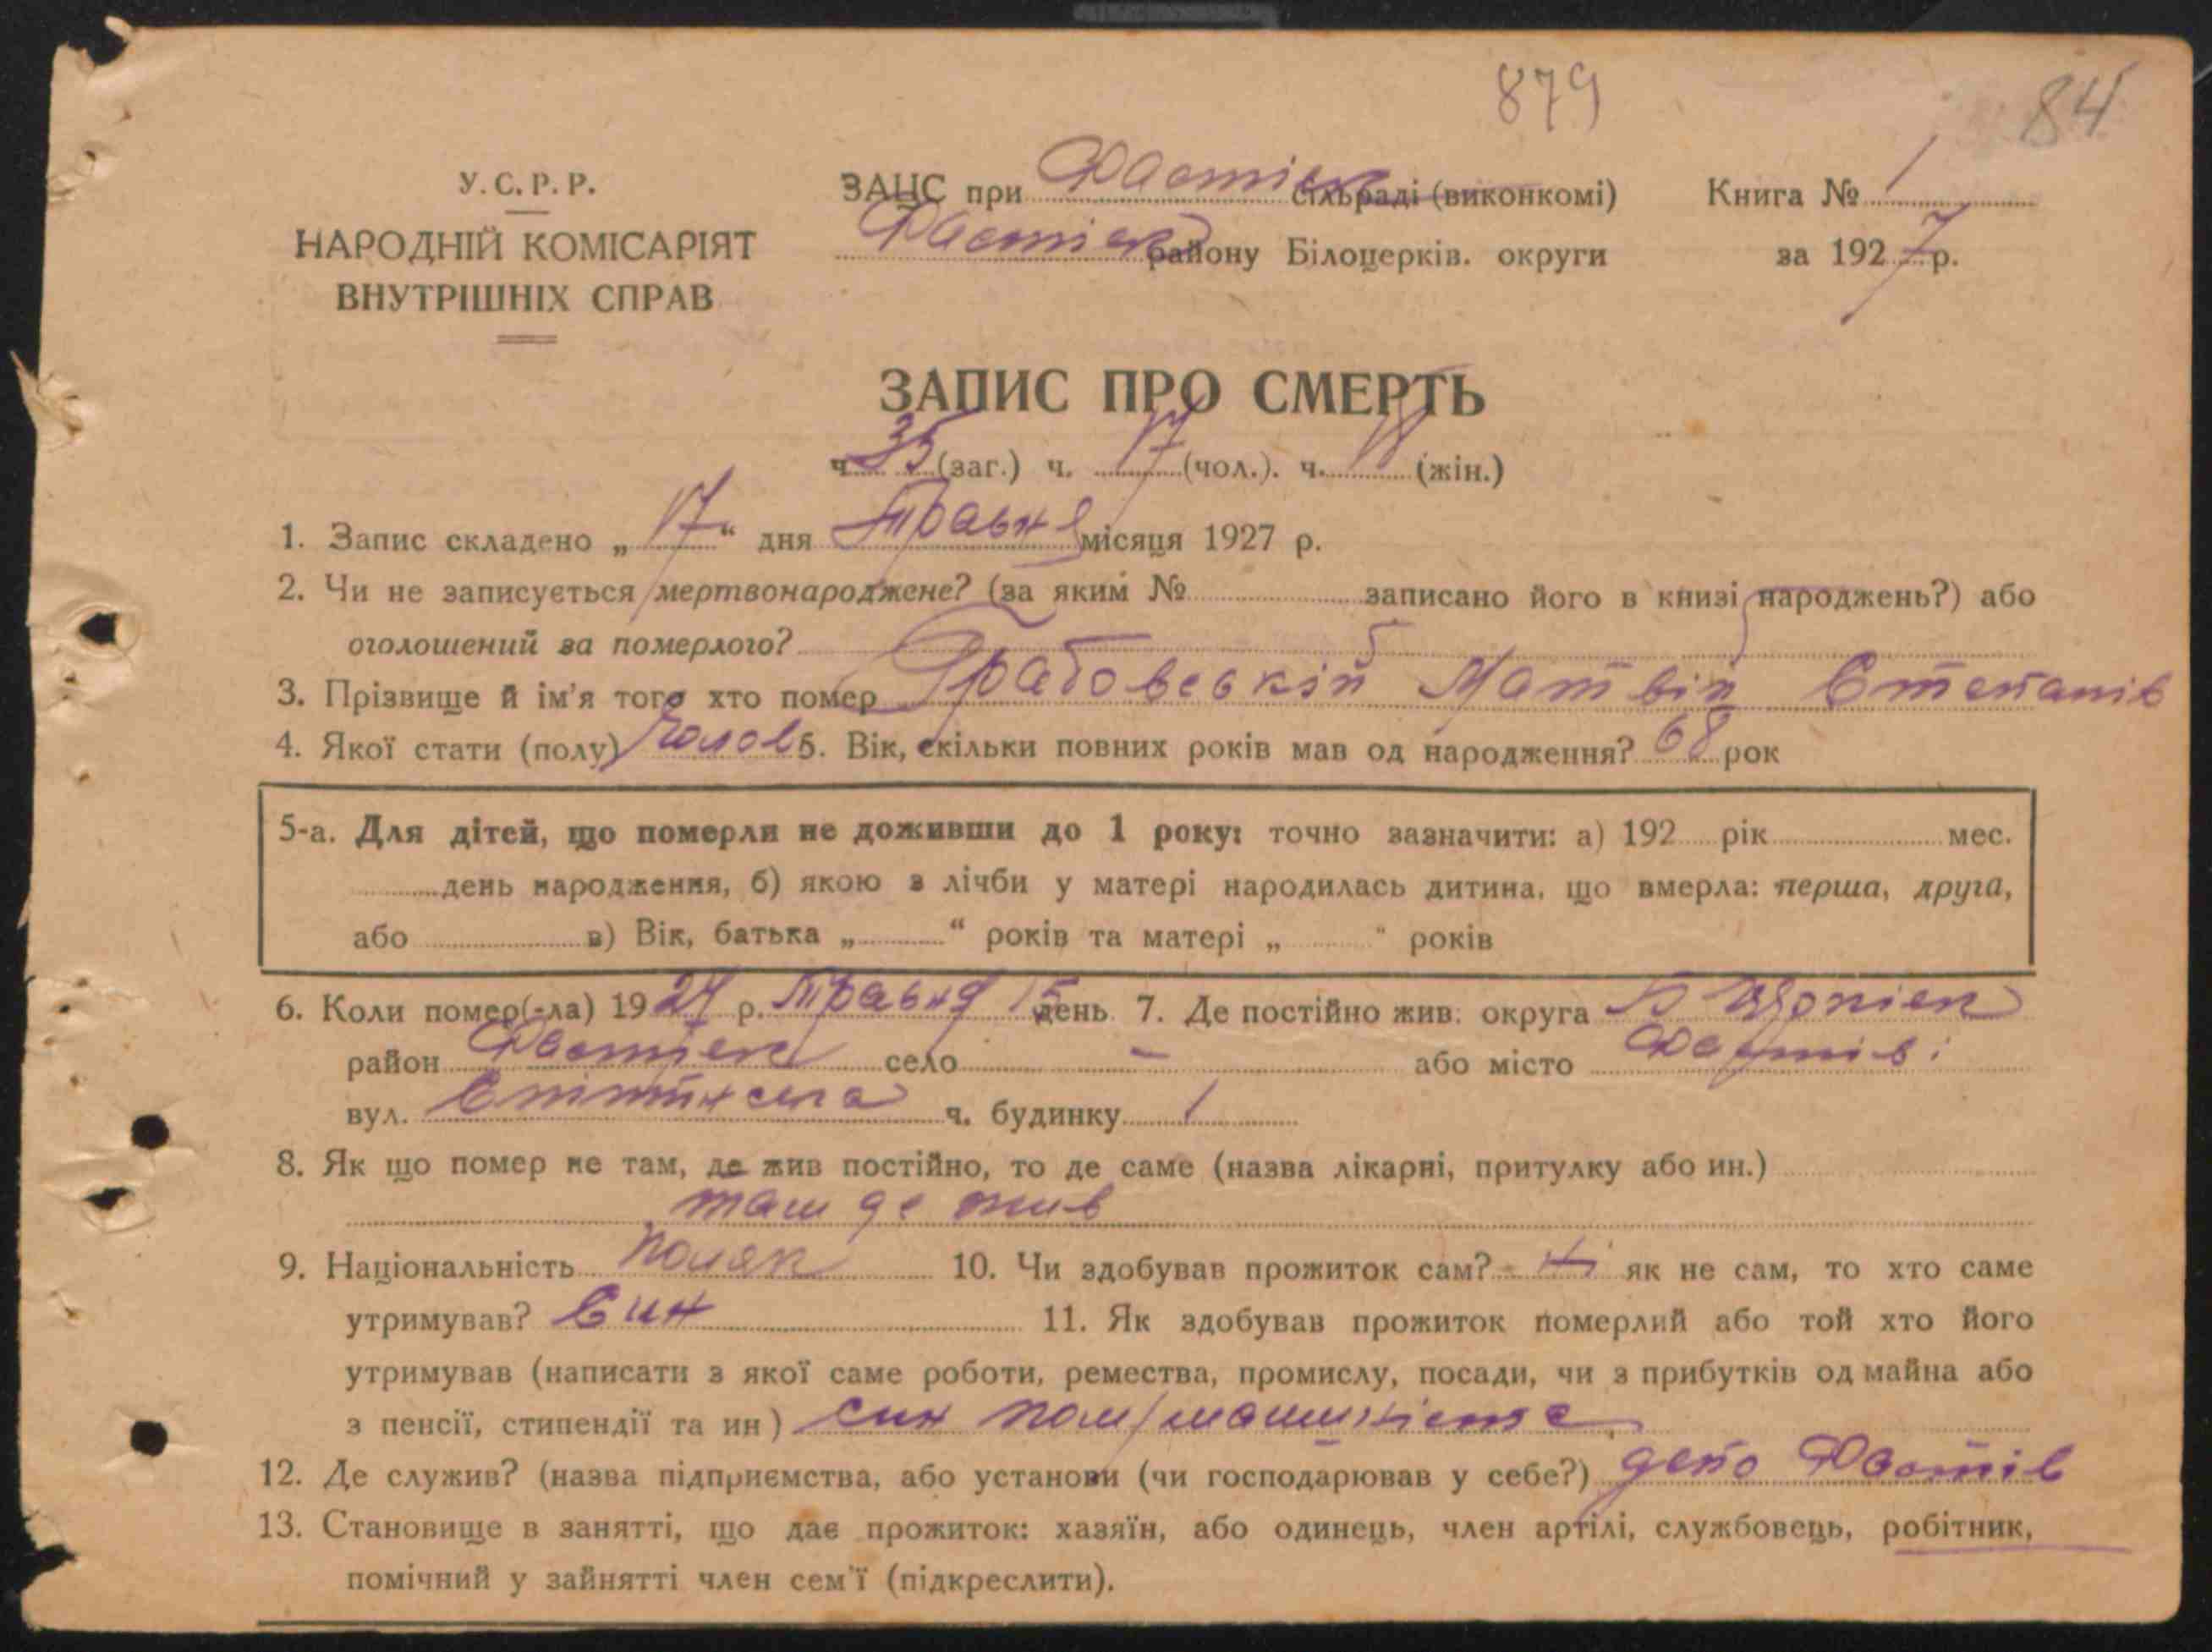 879
84
У. С. Р. Р.
НАРОДНІЙ КОМІСАРІЯТ
ВНУТРІШНІХ СПРАВ
ЗАЦС при Фастівськ сільраді (виконкомі)
Фастівськ району Білоцерків. округи
Книга № 1
за 1927 р.
ЗАПИС ПРО СМЕРТЬ
ч. 35 (заг.) ч. 17 (чол.). ч. 18 (жін.)
1. Запис складено „ 17 “ дня Травня місяця 1927 р.
2. Чи не записується мертвонароджене? (за яким № записано його в книзі народжень?) або
оголошений за померлого?
3. Прізвище й ім'я того хто помер Грабовській Матвій Степанів
4. Якої стати (полу) Чолов 5. Вік, скільки повних років мав од народження? 68 рок
5-а. Для дітей, що померли не доживши до 1 року: точно зазначити: а) 192 рік мес.
день народження, б) якою з лічби у матері народилась дитина, що вмерла: перша, друга,
або в) Вік, батька „ “ років та матері „ “ років
6. Коли помер(-ла) 1927 р. Травня 15 день 7. Де постійно жив: округа Б
район Фастівськ село – або місто Фастів
вул. ч. будинку 1
8. Як що помер не там, де жив постійно, то де саме (назва лікарні, притулку або ин.)
там де жив
9. Національність поляк 10. Чи здобував прожиток сам? ні як не сам, то хто саме
утримував? Син 11. Як здобував прожиток померлий або той хто його
утримував (написати з якої саме роботи, ремества, промислу, посади, чи з прибутків од майна або
з пенсії, стипендії та ин) син пом/машиніста
12. Де служив? (назва підприємства, або установи (чи господарював у себе?) депо Фастів
13. Становище в занятті, що дає прожиток: хазяїн, або одинець, член артілі, службовець, робітник,
помічний у зайнятті член сем'ї (підкреслити).